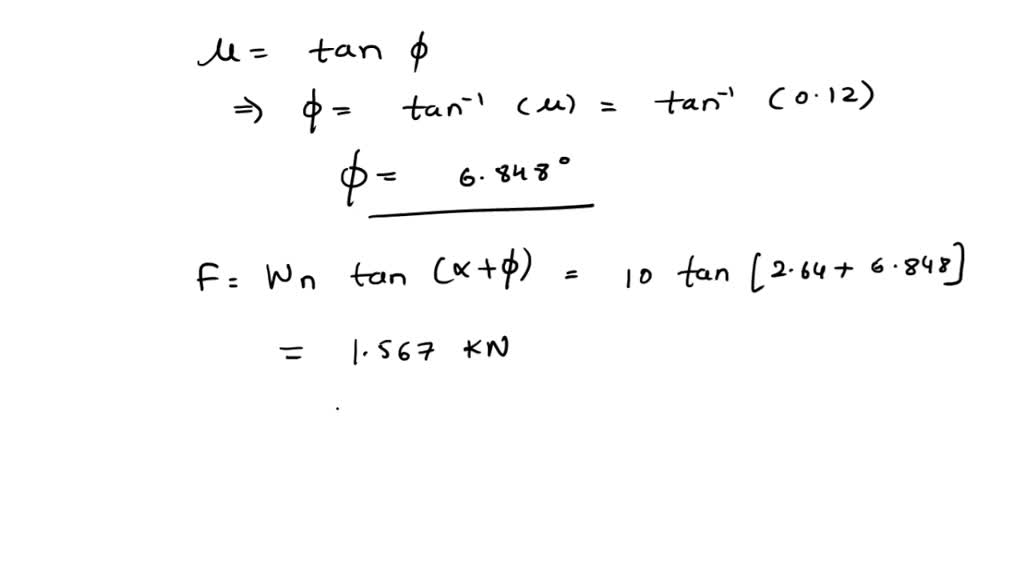 μ = tan ϕ
⇒ ϕ = tan⁻¹ (μ) = tan⁻¹ (0.12)
ϕ = 6.848°
F = Wn tan (α+ϕ) = 10 tan [2.64 + 6.848]
= 1.567 KN